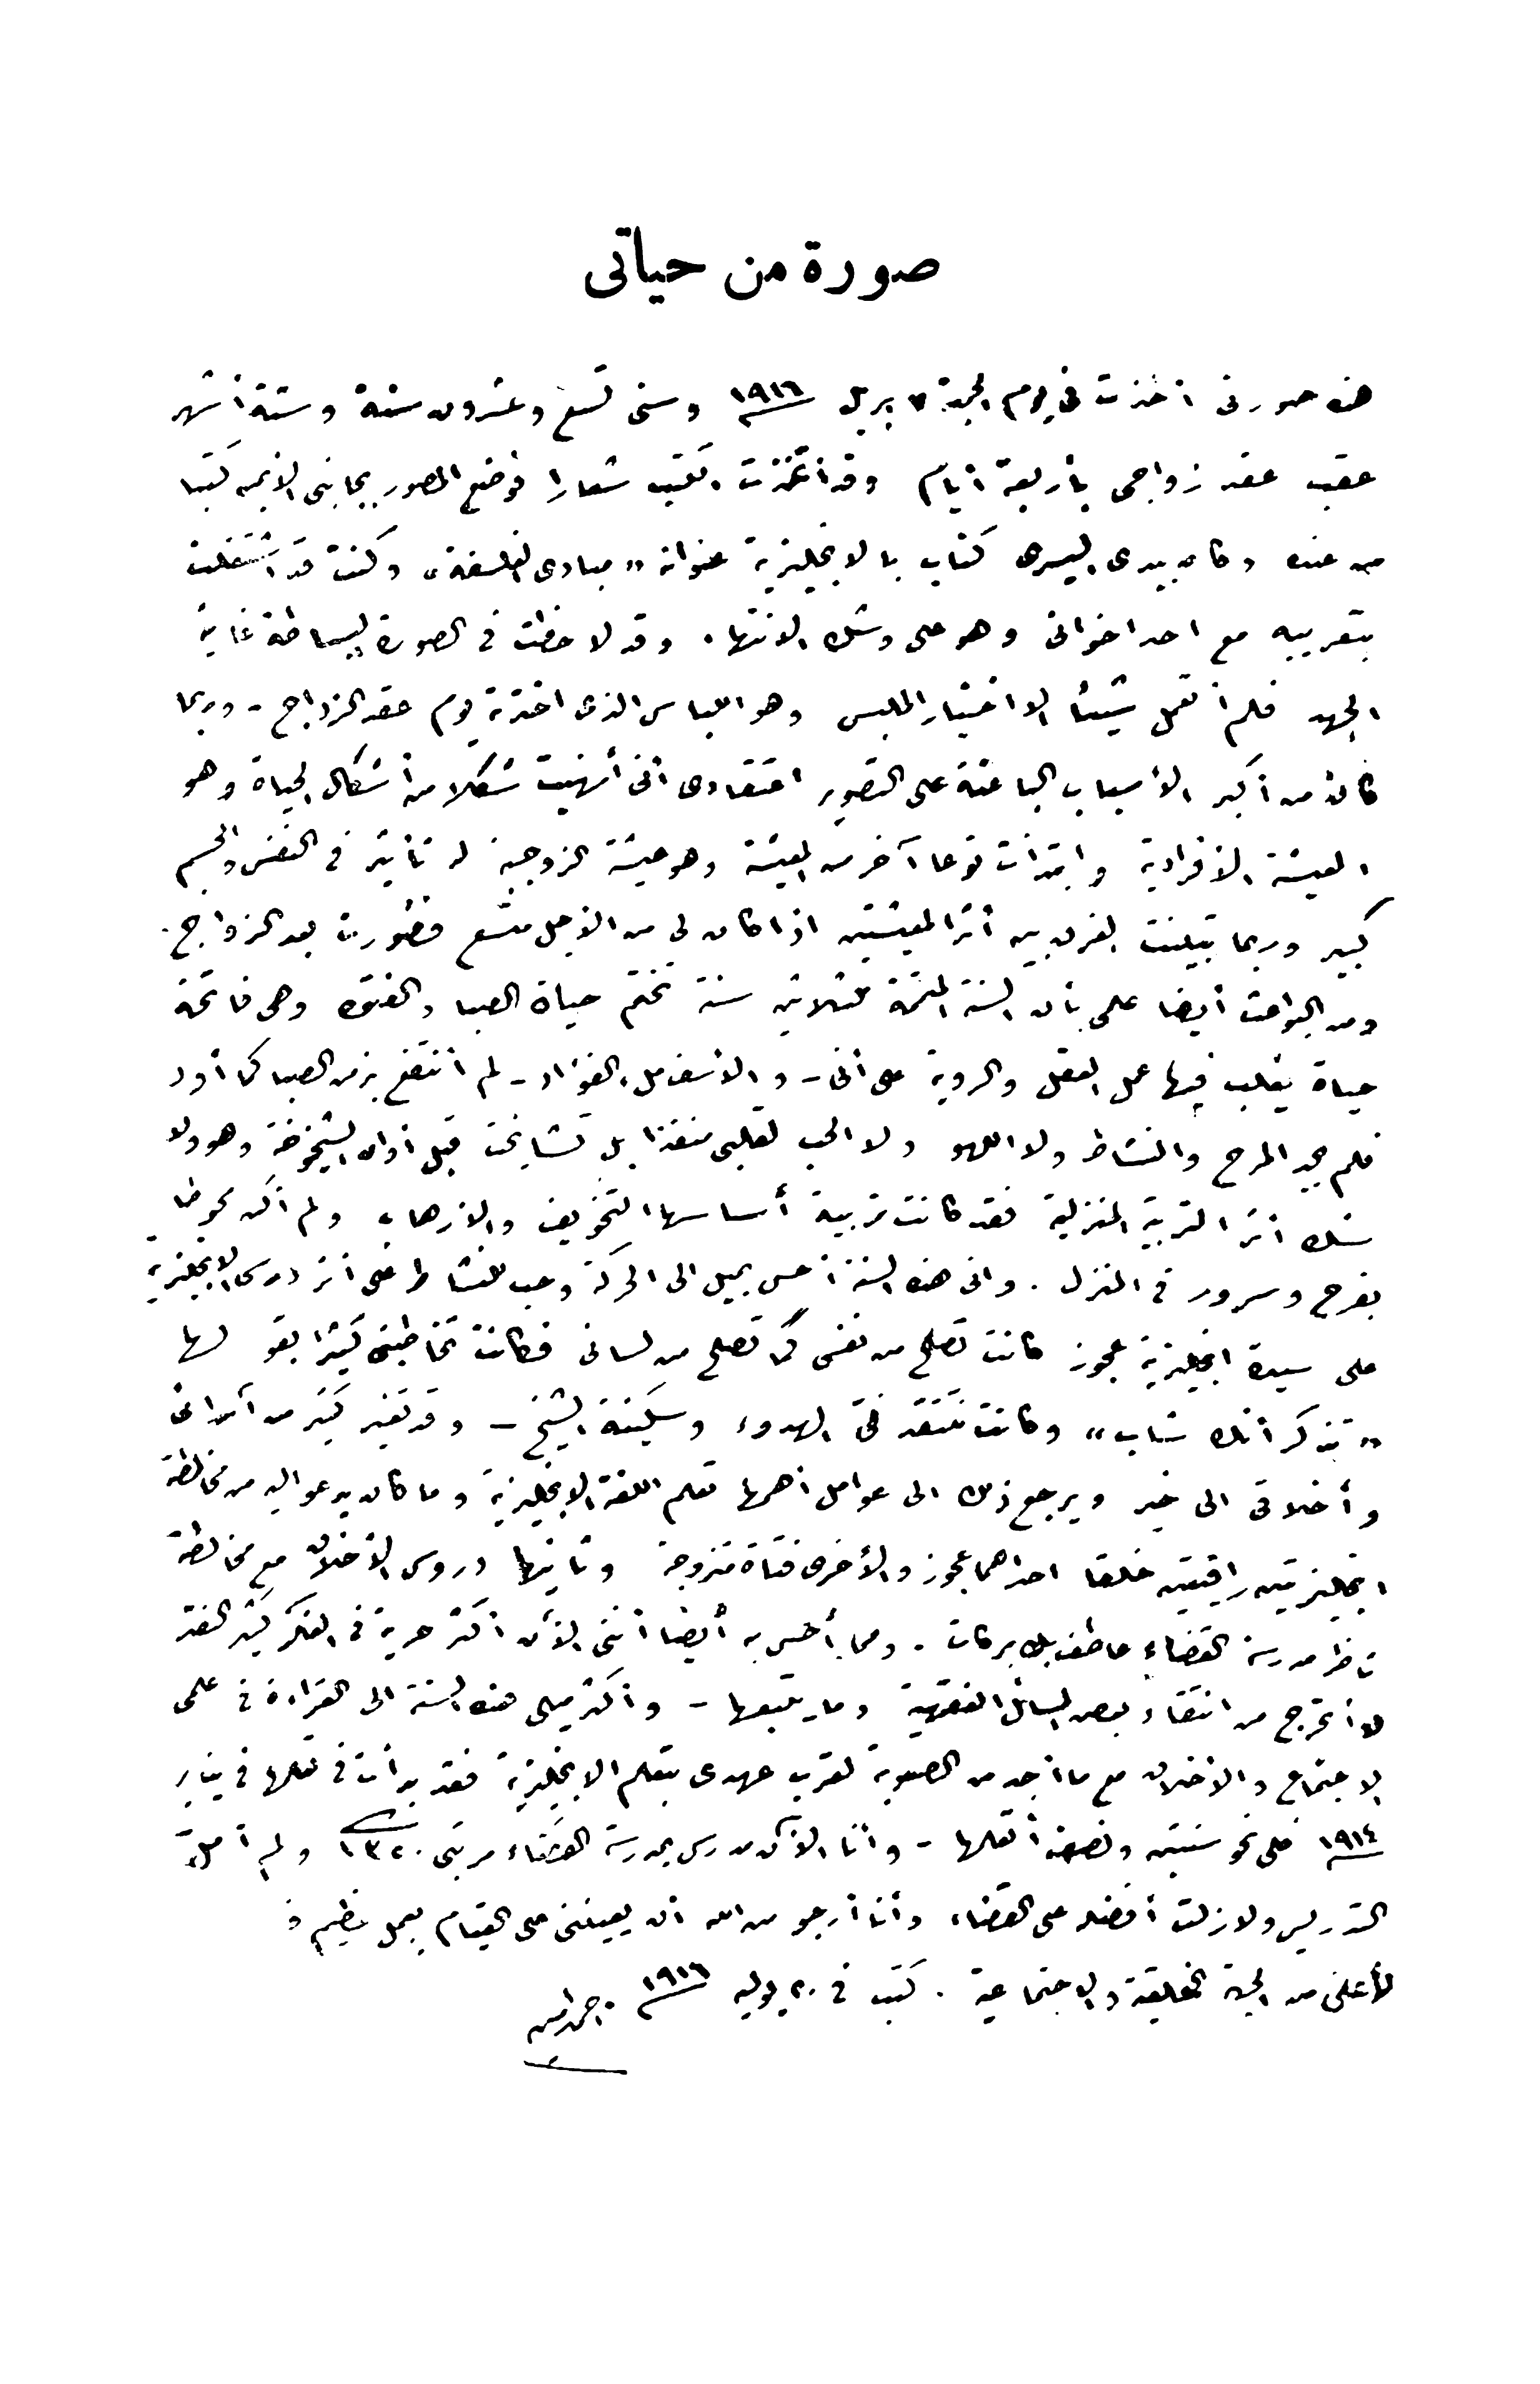 صورة من حياتى
هذه صورتى أخذت فى يوم الجمعة ٧ ابريل ١٩١٦ وسنى تسع وعشرون سنة وستة أشهر
عقب عقد زواجى بأربعة أيام وقد اتخذت الكتب شعارا فوضع المصور بجانبى الأيمن كتبا
من عنده وكان بيدى اليسرى كتاب بالإنجليزية عنوانه «مبادئ الفلسفة» وكنت قد اشتغلت
بتعريبه مع احد اخوانى وهو على وشك الانتهاء. وقد لاحظت فى الصورة البساطة غاية
الجهد فلم أتعمل شيئا الا اختيار الملبس وهو اللباس الذى اخترته يوم عقد الزواج - وربما
كان من أكبر الأسباب الباعثة على التصوير اعتقادى أنى أنهيت شكلا من أشكال الحياة وهو
المعيشة الانفرادية وابتدأت نوعا آخر من المعيشة وهو عيشة الزوجية له تأثير فى النفس والجسم
كبير وربما تبينت الفرق بين أثر المعيشتين اذا كان لى من الأجل متسع فصورت بعد الزواج.
ومن البواعث أيضا علمى بأن السنة المتمة للثلاثين سنة تختم حياة الصبا والفتوة وهى فاتحة
حياة يغلب فيها عمل العقل والروية على أنى - والأسف ملء الفؤاد - لم أنتفع بزمن الصبا كما أود
فلم يجد المرح والنشاط ولا اللهو ولا الحب لقلبى منفذا بل تشايخت قبل أوان الشيخوخة وهو ولا
شك أثر التربية المنزلية فقد كانت تربية أساسها التخويف والارهاب ولم أكن محوطا
بفرح وسرور فى المنزل. وانى هذه السنة أحس بميل الى الحركة وحب للنشاط على أثر درسى الانجليزية
على سيدة انجليزية عجوز كانت تصلح من نفسى كما تصلح من لسانى فكانت تخاطبنى كثيرا بقولها
«تذكر أنك شاب» وكانت تنتقد فىّ الهدوء وسكينة الشيخ - وقد تغير كثير من آرائى
وأخلاقى الى خير ويرجع ذلك الى عوامل أهمها تعلم اللغة الانجليزية وما كان يدعو اليه من مخالطة
انجليزيتين راقيتين خلقا احداهما عجوز والأخرى فتاة متزوجة وثانيها دروس الأخلاق مع مخالطة
ناظر مدرسة القضاء عاطف بك بركات. ومما أحس به أيضا أننى الآن أكثر حرية فى الفكر كثير النقد
لا أتحرج من انتقاد بعض المسائل الفقهية وما يتبعها - وأكثر ميلى هذه السنة الى القراءة فى علمى
الاجتماع والأخلاق مع ما أجد من الصعوبة لقرب عهدى بتعلم الانجليزية فقد بدأت فى تعلمها فى يناير
١٩١٤ فلى نحو سنتين ونصف أتعلمها - وأنا الآن مدرس بمدرسة القضاء مرتبى ١٣٢٠ ولم أملّ
التدريس ولازلت أفضله على القضاء وأنا أرجو من الله أن يعيننى على القيام بعمل عظيم
من الجهة الخلقية والاجتماعية. كتب فى ٢٠ يوليه ١٩١٦ . احمد امين